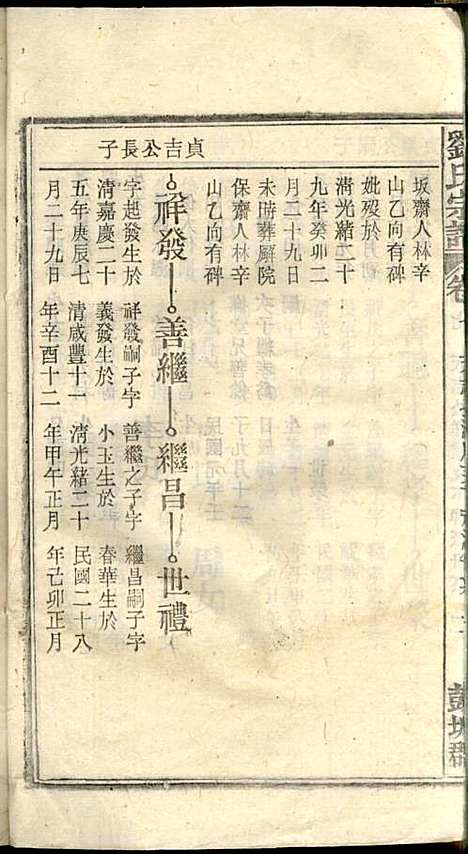 劉氏宗譜 卷
彭城郡
貞吉公長子
坂齋人林辛
山乙向有碑
妣歿於
清光緒二十
九年癸卯二
月二十九日
未時葬院
保齋人林辛
山乙向有碑
祥發 善繼 繼昌 世禮
字起發生於 祥發嗣子字 善繼之子字 繼昌嗣子字
清嘉慶二十 義發生於 小玉生於 春華生於
五年庚辰七 清咸豐十一 清光緒二十 民國二十八
月二十九日 年辛酉十二 年甲午正月 年己卯正月